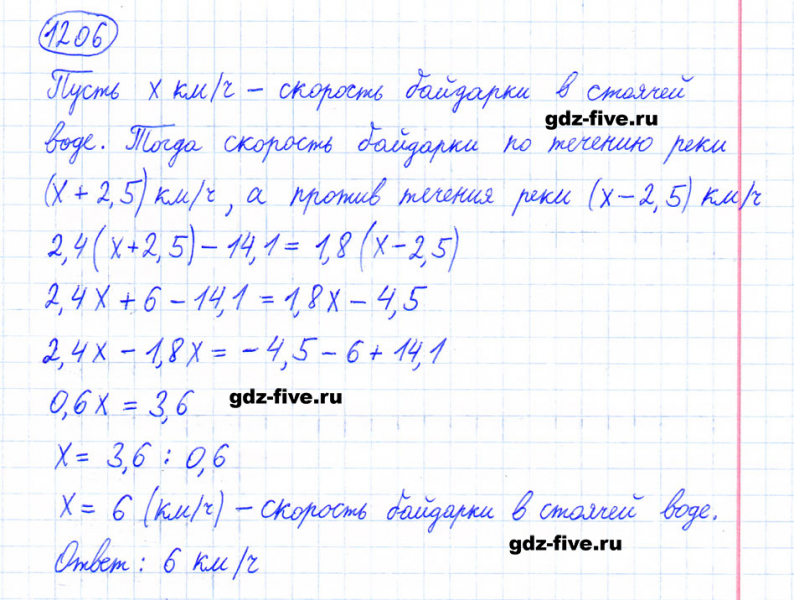 1206
Пусть x км/ч – скорость байдарки в стоячей
gdz-five.ru
воде. Тогда скорость байдарки по течению реки
(x + 2,5) км/ч, а против течения реки (x – 2,5) км/ч
2,4(x+2,5) – 14,1 = 1,8(x – 2,5)
2,4x + 6 – 14,1 = 1,8x – 4,5
2,4x – 1,8x = –4,5 – 6 + 14,1
0,6x = 3,6
gdz-five.ru
x = 3,6 : 0,6
x = 6 (км/ч) – скорость байдарки в стоячей воде.
gdz-five.ru
Ответ: 6 км/ч